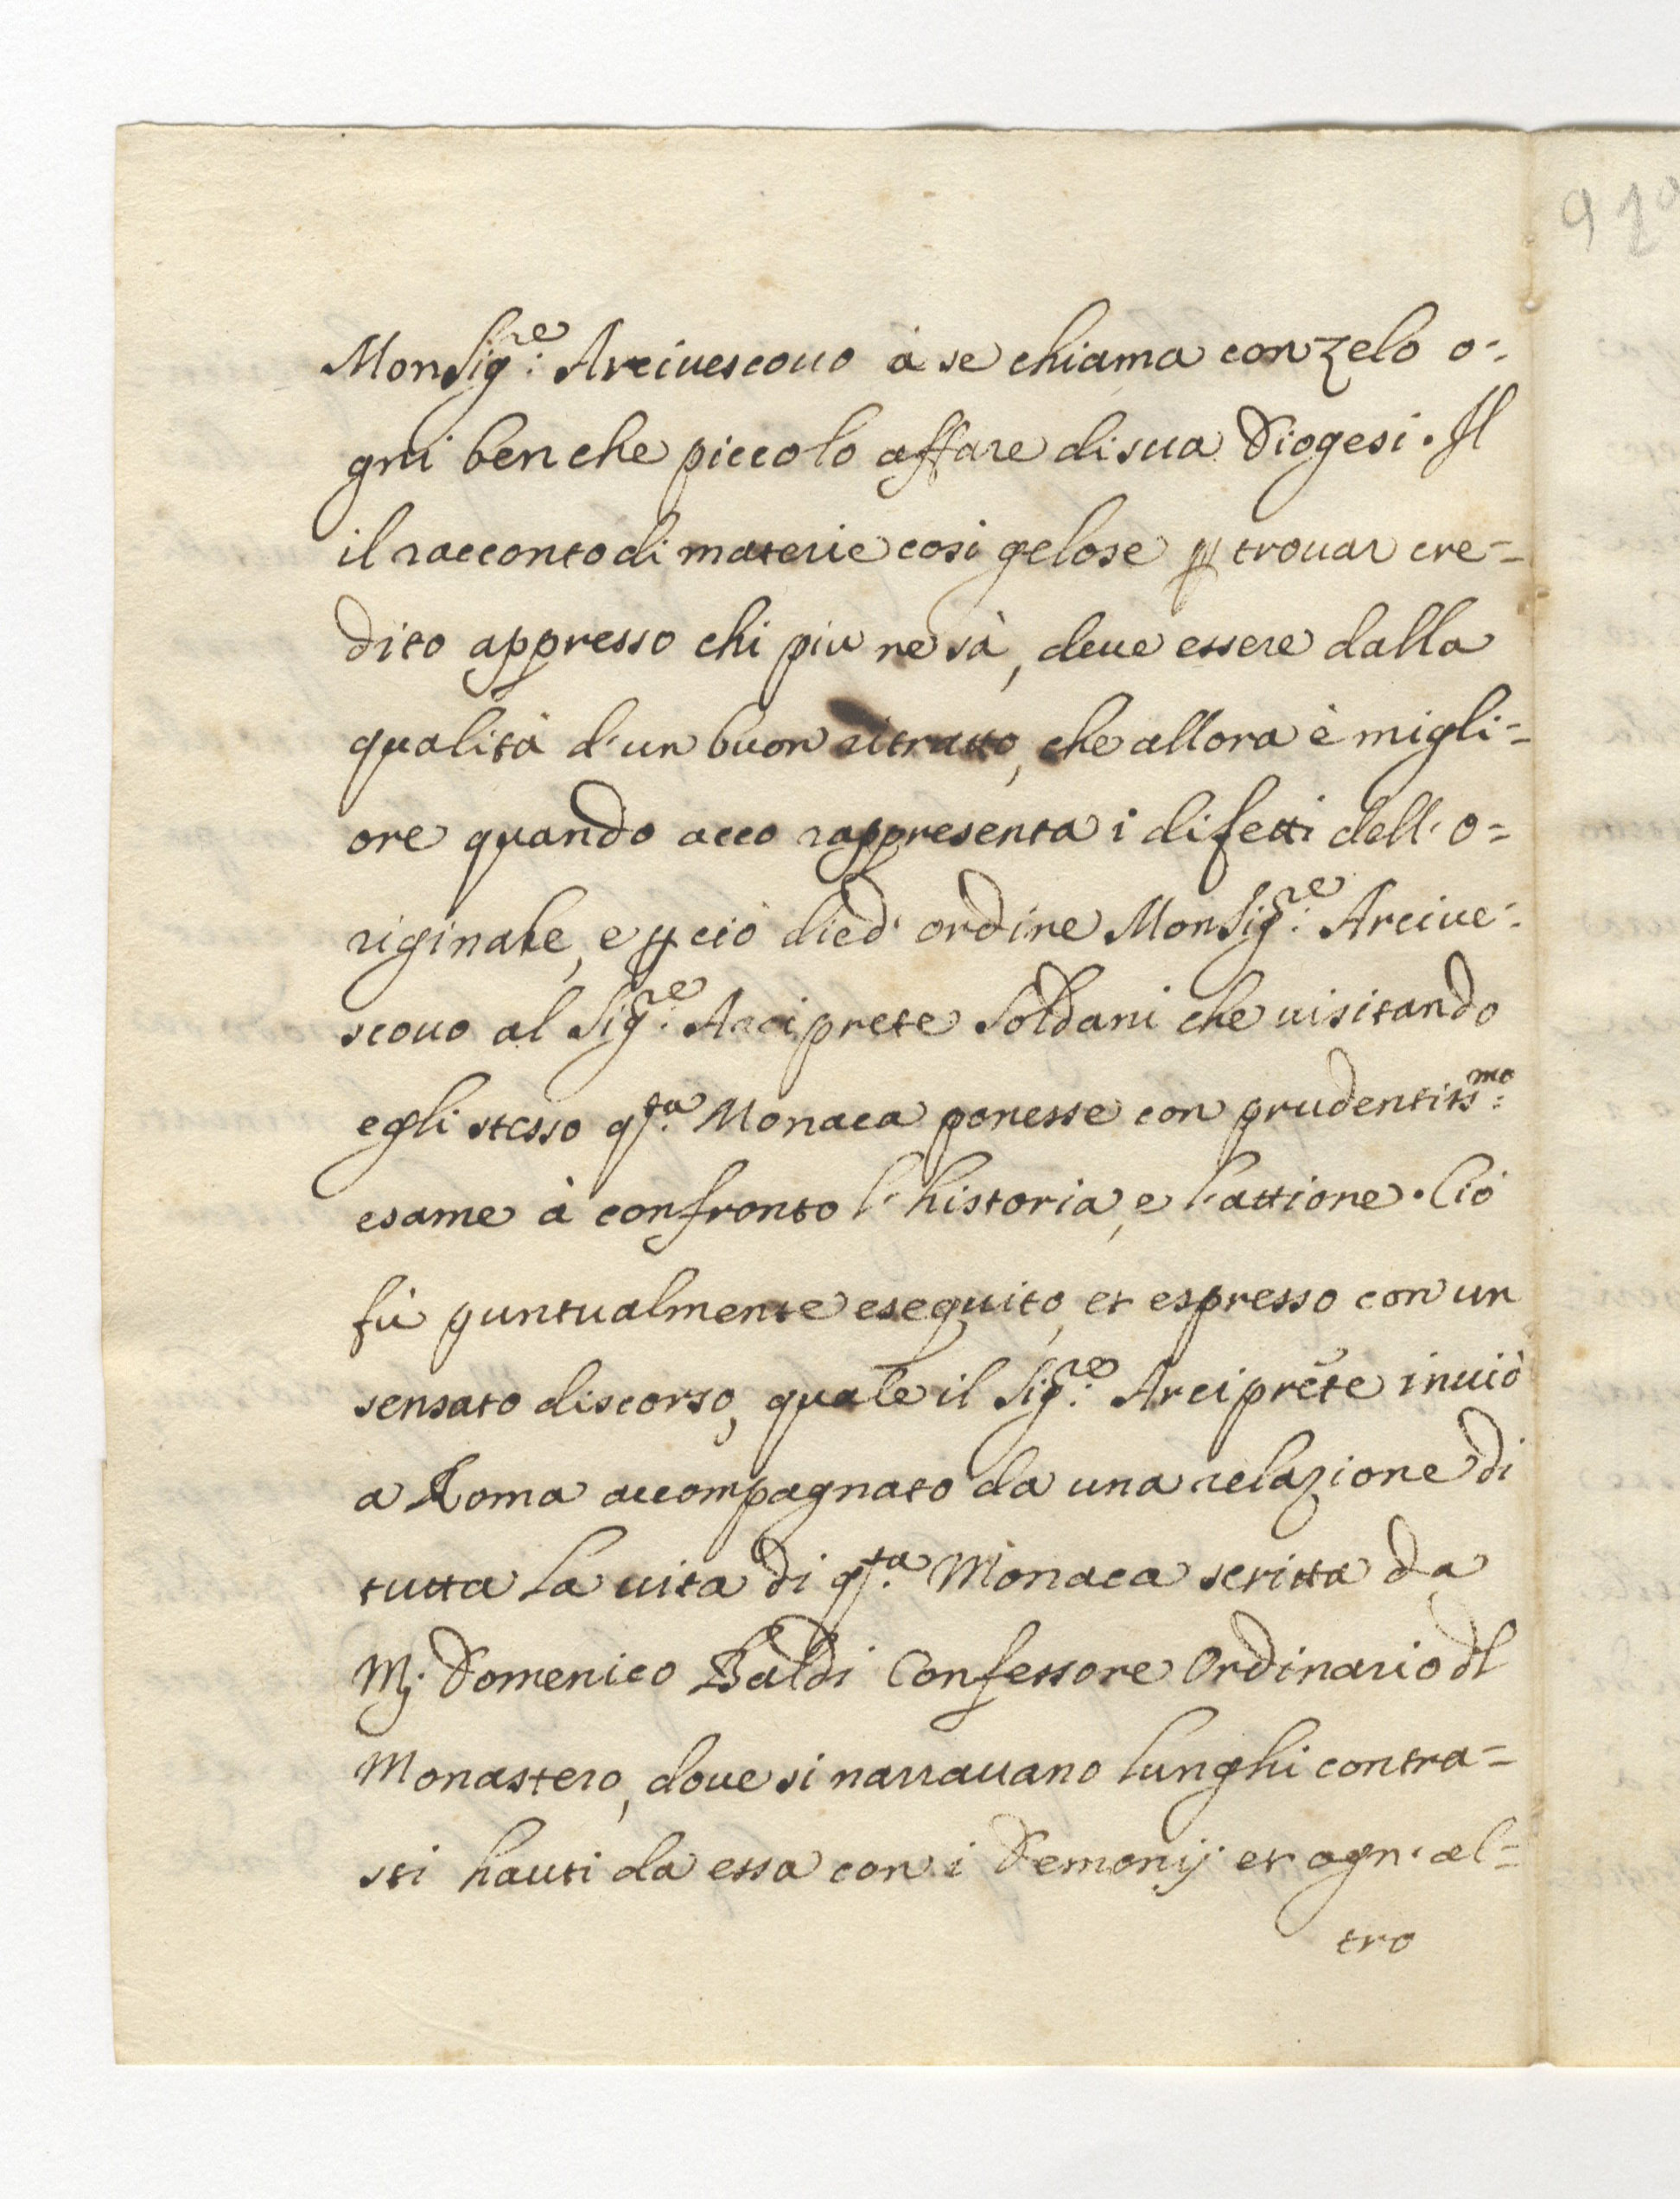 91º
MonSig:re Arciuescouo à se chiama con zelo o=
gni ben che piccolo affare di sua Diogesi. Il
il racconto di materie cosi gelose ꝑ trouar cre=
dito appresso chi piu ne sà, deue essere dalla
qualità d'un buon ritratto, che allora è migli=
ore quando acco rappresenta i difetti dell'o=
riginale, e ꝑ ciò died' ordine MonSig:re Arciue=
scouo al Sig:re Arciprete Soldani che uisitando
egli stesso q.sta Monaca ponesse con prudentiss:mo
esame à confronto l'historia, e l'attione. Ciò
fù puntualmente eseguito, et espresso con un
sensato discorso, quale il Sig:re Arciprete inuiò
a Roma accompagnato da una relazione di
tutta la uita di q.sta Monaca scritta da
Mj. Domenico Baldi Confessore Ordinario dl
Monastero, doue si narrauano lunghi contra=
sti hauti da essa con i Demonij et ogn'al=
tro